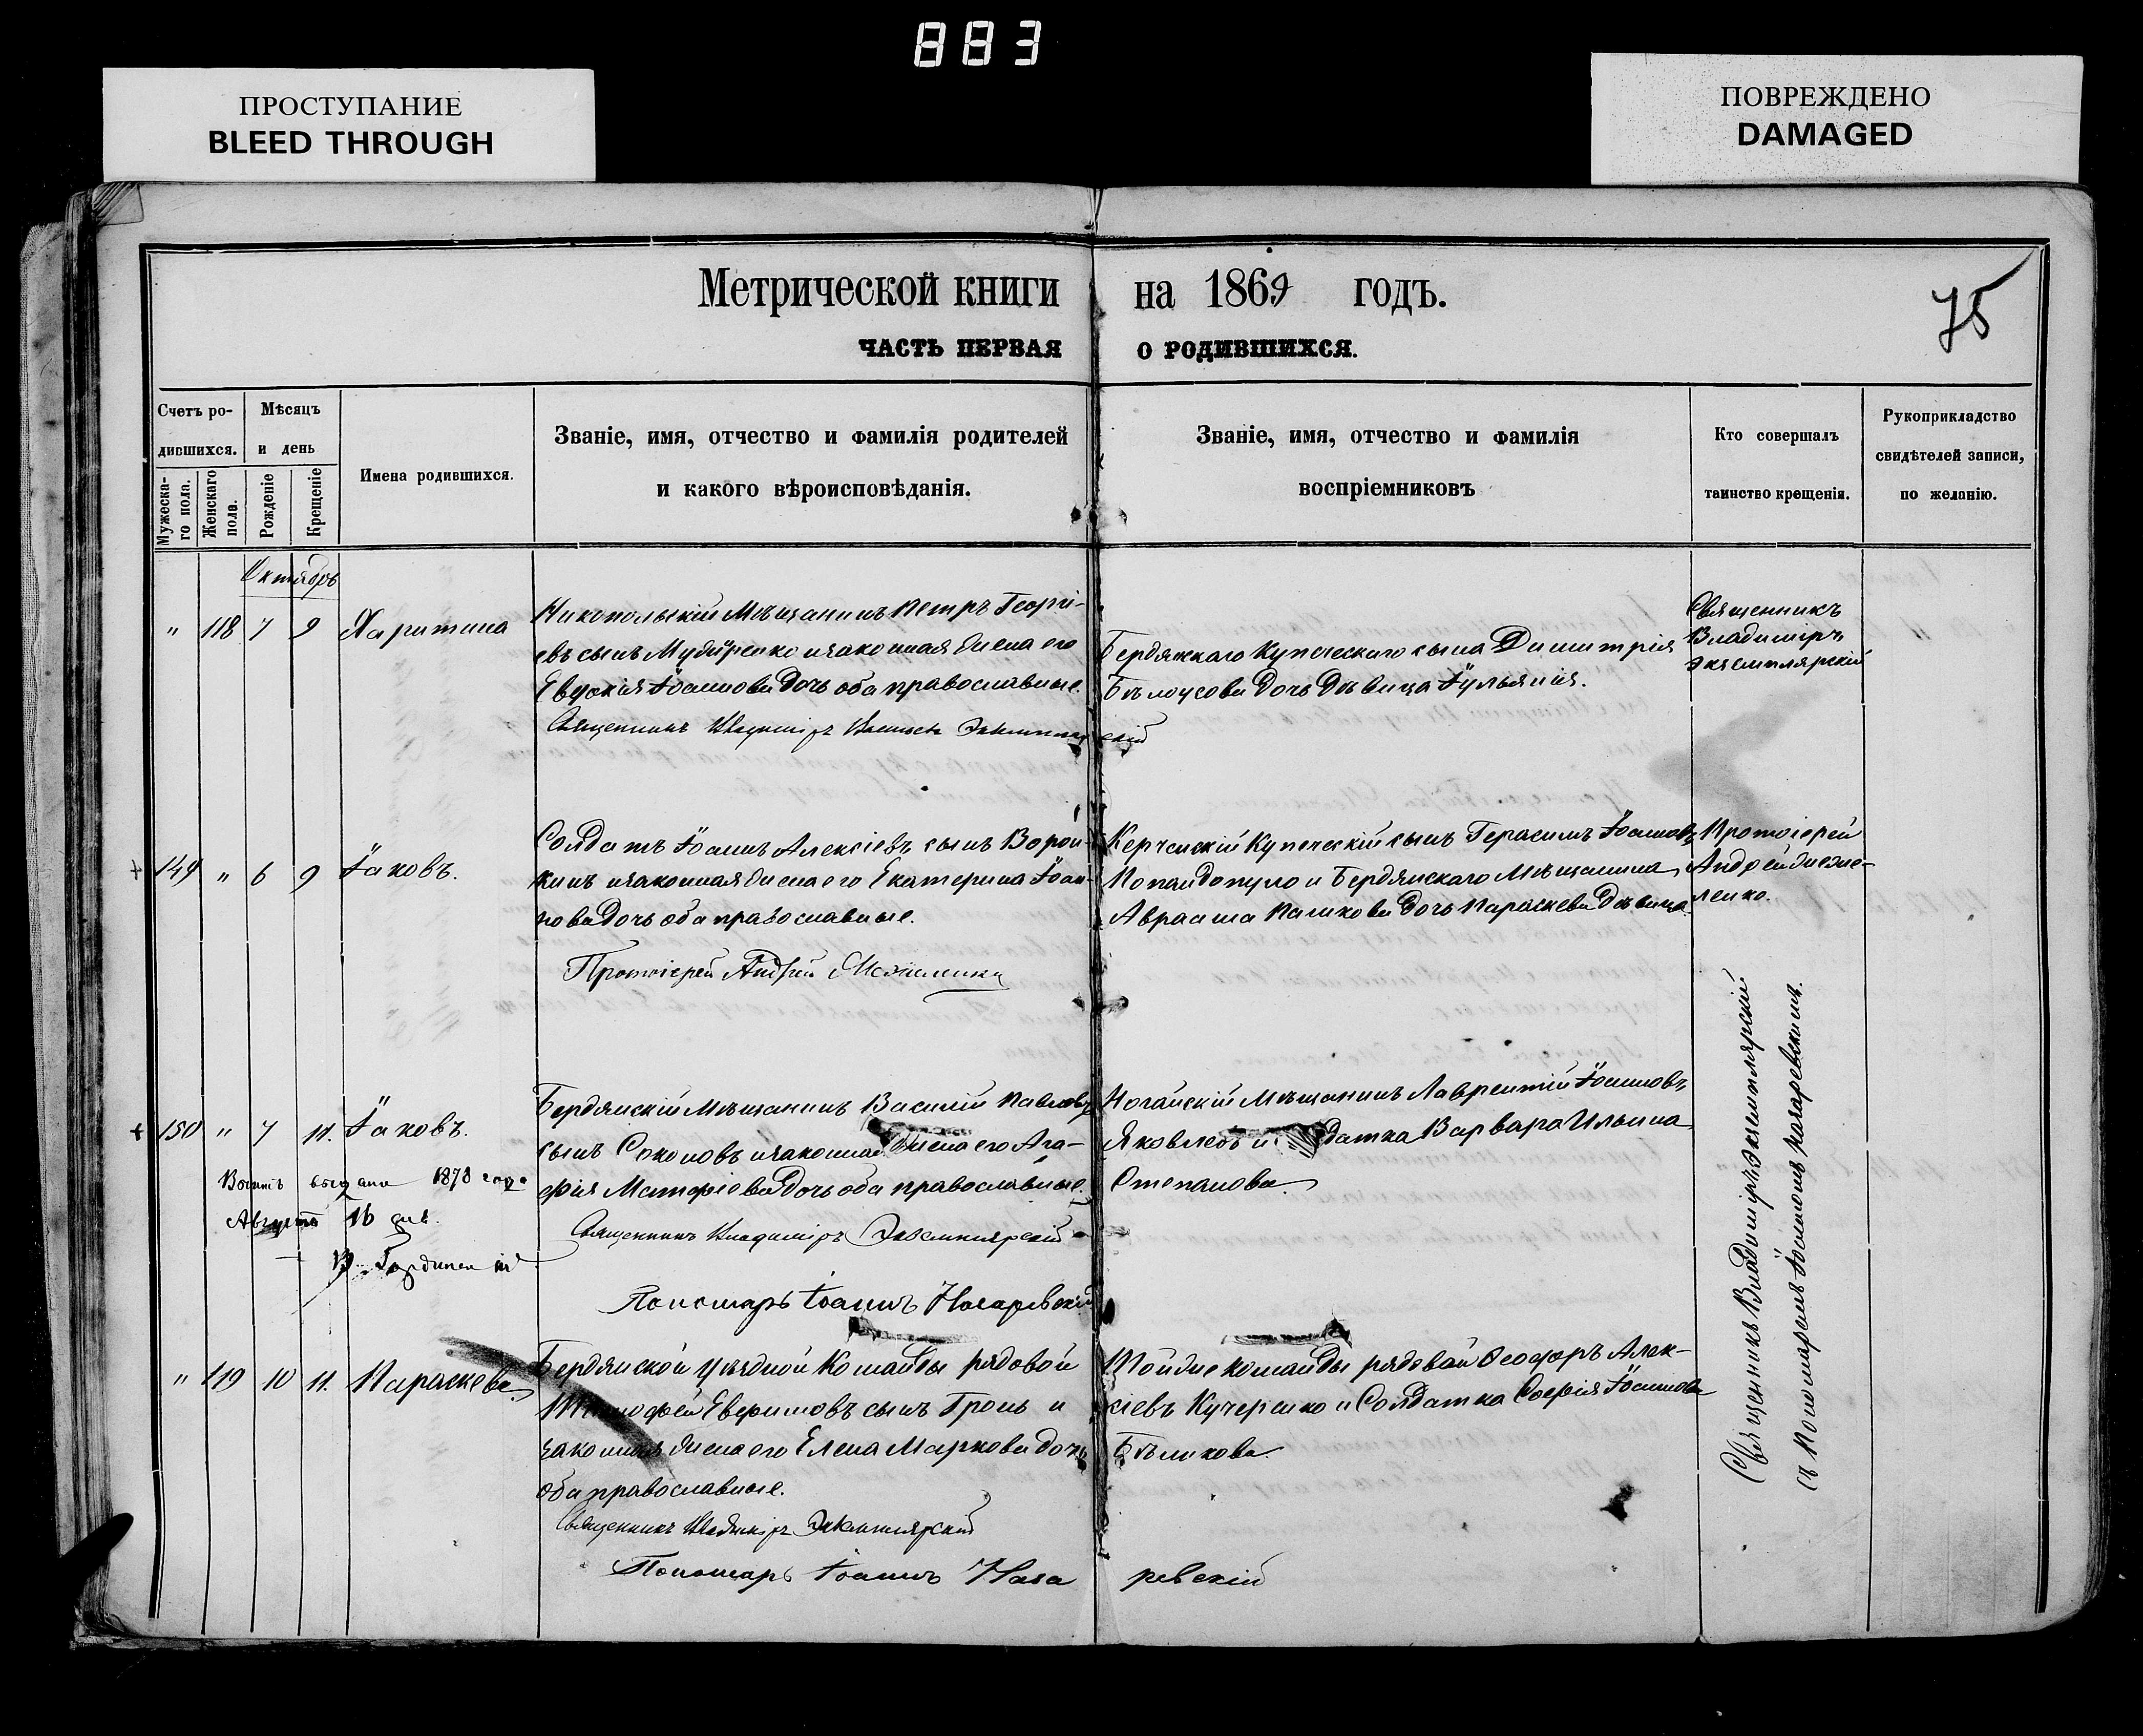 883
ПРОСТУПАНИЕ
BLEED THROUGH
ПОВРЕЖДЕНО
DAMAGED
Метрической книги на 1869 годъ.
75
ЧАСТЬ ПЕРВАЯ О РОДИВШИХСЯ.
Счетъ родившихся.
Мужескаго пола.
Женскаго пола.
Мѣсяцъ и день
Рожденіе
Крещеніе
Имена родившихся.
Званіе, имя, отчество и фамилія родителей
и какого вѣроисповѣданія.
Званіе, имя, отчество и фамилія
воспріемниковъ
Кто совершалъ
таинство крещенія.
Рукоприкладство
свидѣтелей записи,
по желанію.
Октябрь
" 118 7 9 Харитина
Никопольскій Мѣщанинъ Петръ Георгі-
евъ сынъ и законная жена его
Евдокія Іоаннова дочь оба православные.
Священникъ Владиміръ Экземплярскій
Бердянскаго Купеческаго сына Димитрія
Бѣлоусова дочь Дѣвица Іуліанія.
Священникъ
Владиміръ
Экземплярскій
149 " 6 9 Іаковъ.
Солдатъ Іоаннъ Алексіевъ сынъ Ворон-
кинъ и законная жена его Екатерина Іоан-
нова дочь оба православные.
Протоіерей Андрей
Керченскій Купеческій сынъ Герасимъ Іоанновъ
Попандопуло и Бердянскаго Мѣщанина
Авраама дочь Параскева Дѣвица.
Протоіерей
Андрей
150 " 7 11. Іаковъ.
выдана 1878 года
Августа 16 дня.
Бердянскій Мѣщанинъ Василій Павловъ
сынъ Соколовъ и законная жена его Ага-
фія Матфіева дочь оба православные.
Священникъ Владиміръ Экземплярскій
Пономарь Іоаннъ
Ногайскій Мѣщанинъ Лаврентій Іоанновъ
Яковлевъ и Варвара Ильина
Степанова.
" 119 10 11. Параскева.
Бердянской уѣздной Команды рядовой
Тимофей Евфимовъ сынъ Гронь и
законная жена его Елена Маркова дочь
оба православные.
Священникъ Владиміръ Экземплярскій
Пономарь Іоаннъ
Той же команды рядовой Ѳеодоръ Алек-
сіевъ Кучеренко и Солдатка Софія Іоаннова
Бѣликова.
Священникъ Владиміръ Экземплярскій
съ Пономаремъ Іоанномъ